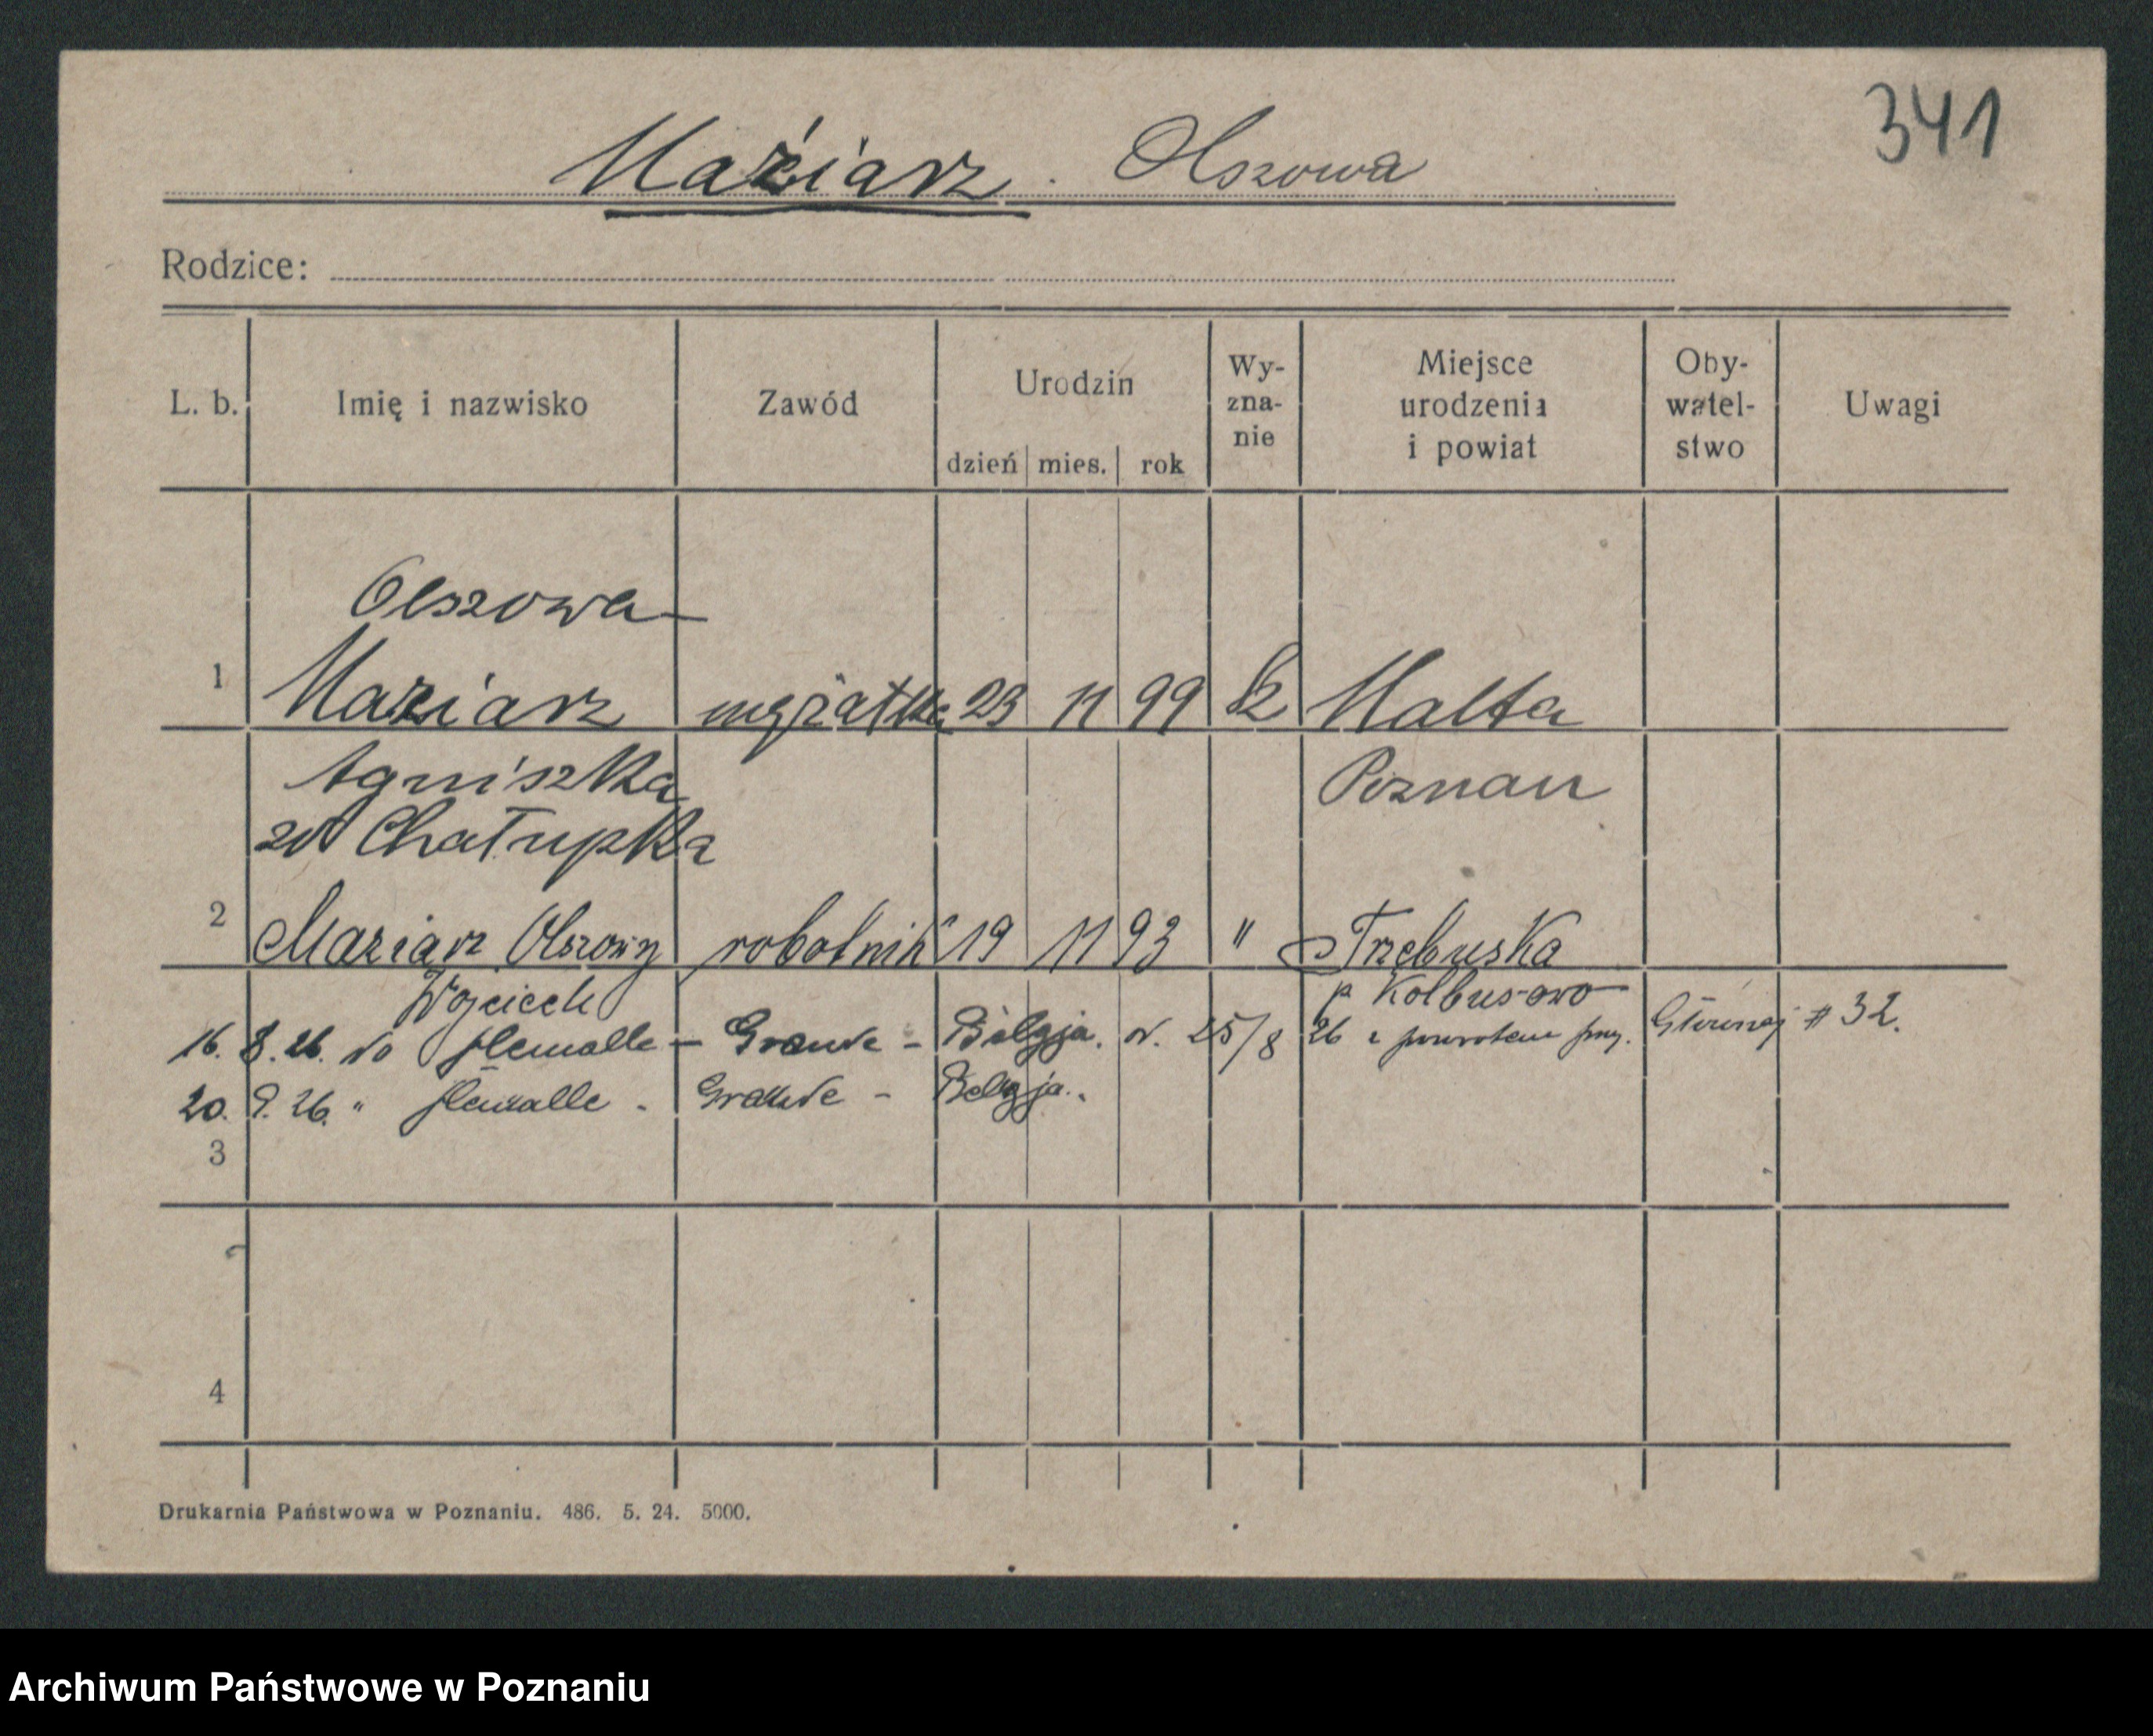 341
Maźiarz . Olszowa
Rodzice:
L. b. Imię i nazwisko Zawód Urodzin dzień mies. rok Wy- zna- nie Miejsce urodzenia i powiat Oby- watel- stwo Uwagi
Olszowa
1 Maziarz mężatka 23 11 99 k Malta
Agniszka Poznan
zd Chałupka
2 Maziarz Olszowy robotnik 19 11 93 " Trzebuska
Wojciech p Kolbuszowo
16. 8. 26. do Flemalle - Grande - Belgja. d. 25/8 26 z powrotem przy. Głównej # 32.
20. 9. 26. " Flemalle - Grande - Belgja.
3
4
Drukarnia Państwowa w Poznaniu. 486. 5. 24. 5000.
Archiwum Państwowe w Poznaniu